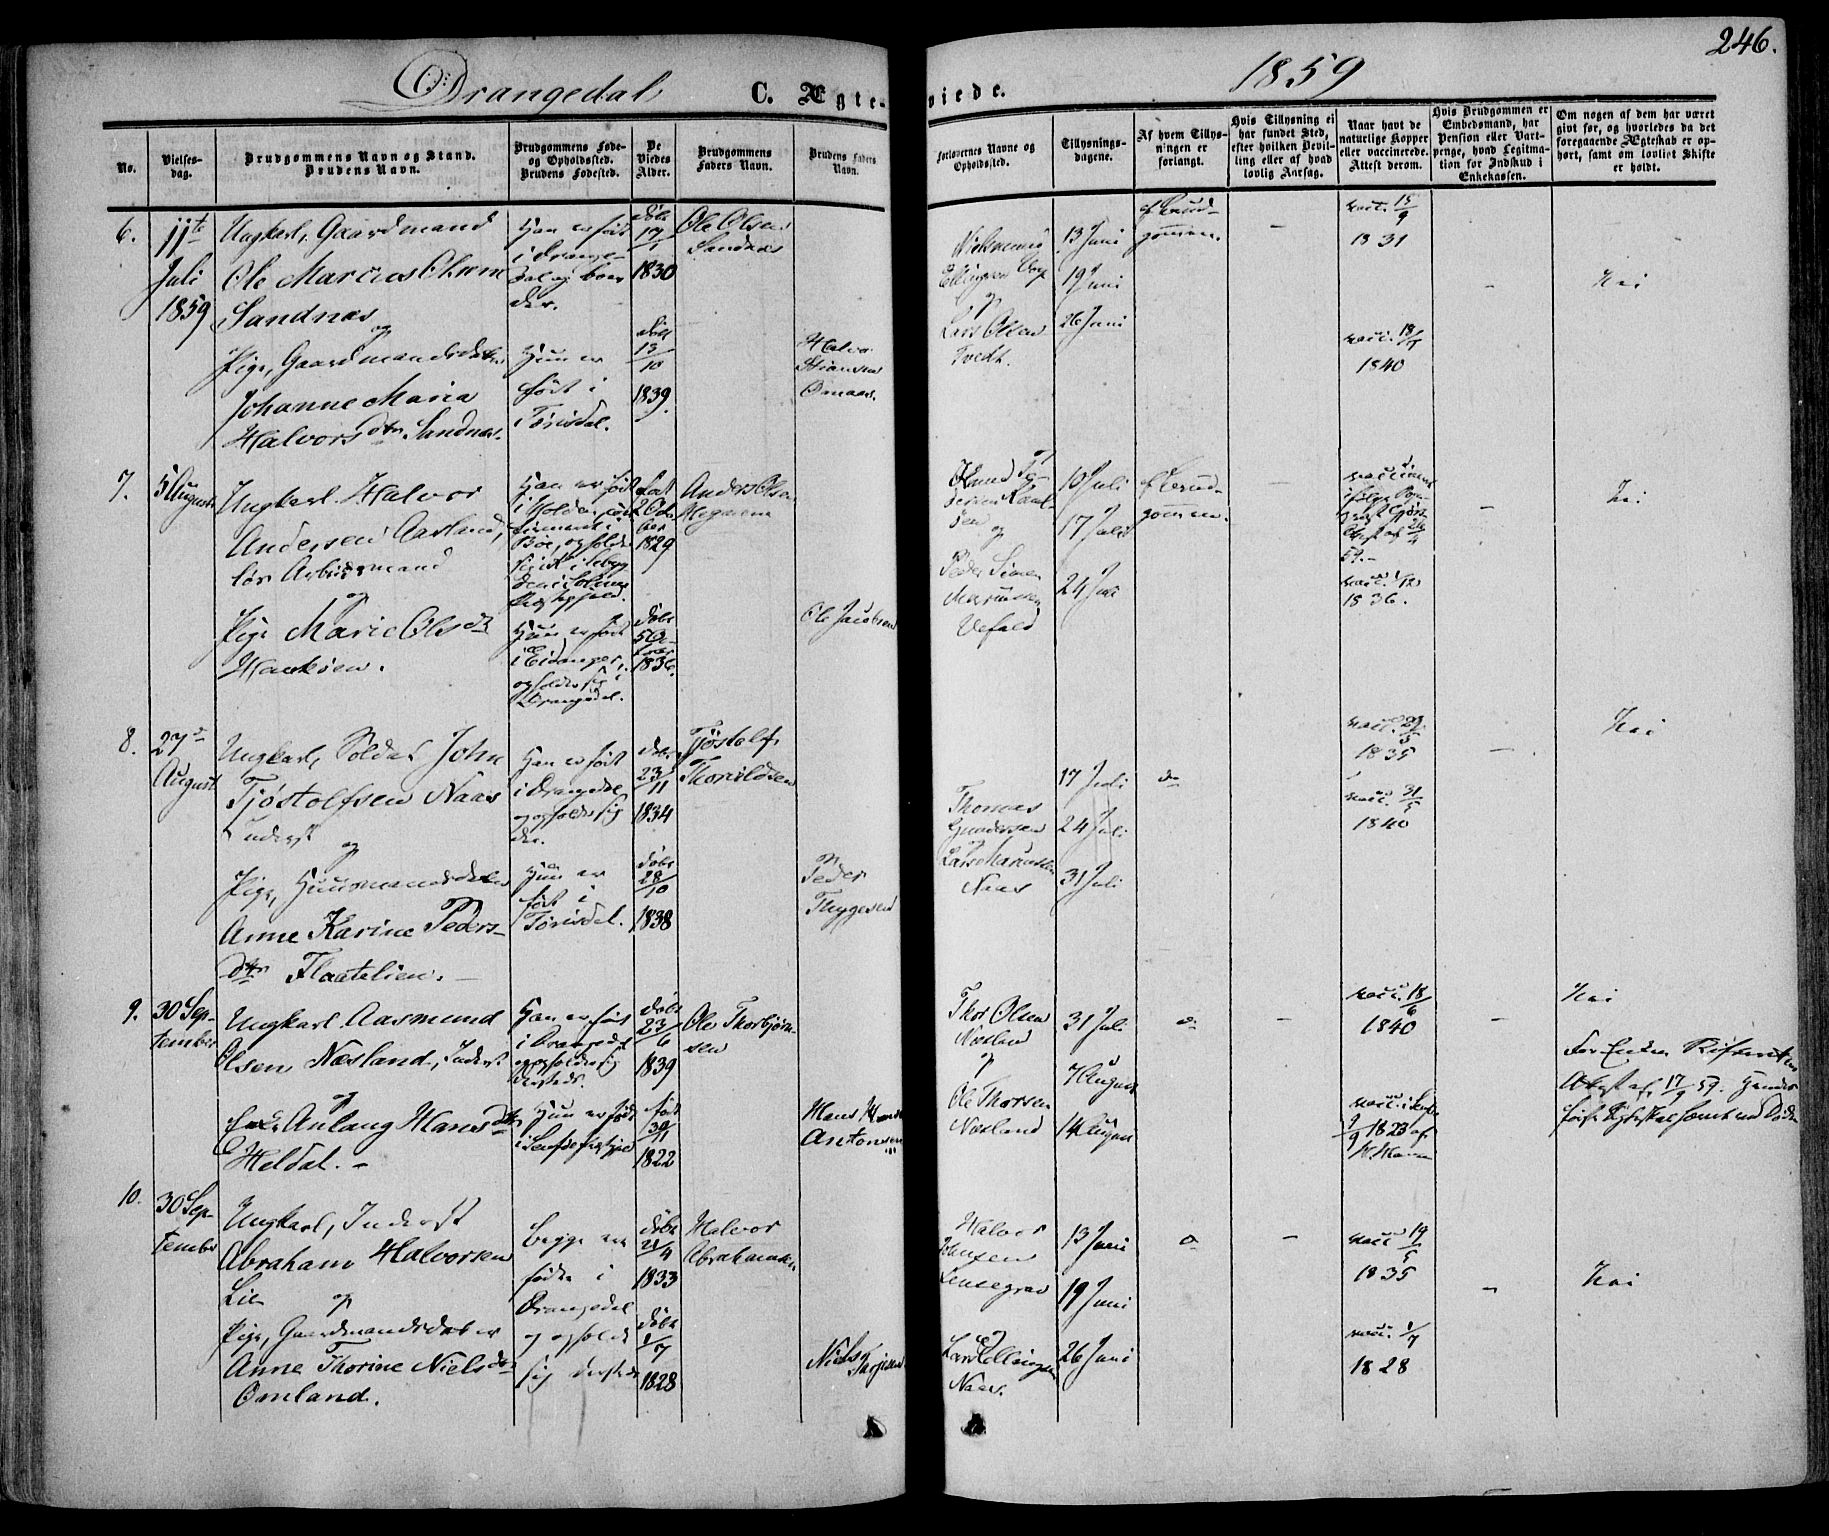 Drangedal
C. Ægte-
viede.
1859
246.
No.
Vielses-
dag.
Brudgommens Navn og Stand.
Brudens Navn.
Brudgommens Føde-
og Opholdssted.
Brudens Fødested.
De
Viedes
Alder.
Brudgommens
Faders Navn.
Brudens Faders
Navn.
Forlovernes Navne og
Opholdssted.
Tillysnings-
dagene.
Af hvem Tillys-
ningen er
forlangt.
Hvis Tillysning ei
har fundet Sted,
efter hvilken Bevil-
ling eller af hvad
lovlig Aarsag.
Naar havt de
naturlige Kopper
eller vaccinerede.
Attest derom.
Hvis Brudgommen er
Embedsmand, har
Pension eller Vart-
penge, hvad Legitima-
tion for Indskud i
Enkekassen.
Om nogen af dem har været
givt før, og hvorledes da det
foregaaende Ægteskab er op-
hørt, samt om lovligt Skifte
er holdt.
6.
11te
Juli
1859
Ungkarl, Gaardmand
Ole Marcus Olsen
Sandnæs
og
Pige, Gaardmandsdatter
Johanne Maria
Halvorsdtr Sandnæs.
Han er født
i Drange-
dal og boer
der.
Hun er
født i
Tørisdal.
døbt
17/1
1830
døbt
13/10
1839.
Ole Olsen
Sandnæs
Halvor
Stiansen
Ellingsen
og
Lars Olsen
Tvedt.
13 Juni
19 Juni
26 Juni
Brud-
gommen.
–
vacc. 15/9
1831
vacc.
1840
–
Nei
7.
5 August
Ungkarl Halvor
Andersen Aasland,
løs Arbeidsmand
og
Pige Marie Olsdtr
Haukøen.
Han er født
i Holden, con-
firmeret i
Bøe, og holder
sig
Hun er født
i Eidanger,
opholder sig i
Drangedal.
født
2 Octo-
ber
1829
døbt
1836.
Anders Olsen
Ole Jacobsen
Knud Pe-
dersen
og
Peder Simon
Marcussen
Vefald
10 Juli
17 Juli
24 Juli
Brud-
gommen.
–
vaccineret
ifølge
59.–
vacc.
1836.
–
Nei
8.
27de
August
Ungkarl, Soldat John
Tjøstolfsen Naas
inderst
og
Pige, Huusmandsdatter
Anne Karine Peders-
dtr Flaatelien.
Han er født
i Drangedal
og opholder sig
der.
Hun er
født i
Tørisdal.
døbt
23/11
1834
døbt
28/10
1838
Tjøstolf
Thorildsen
Peder
Thygesen
Thomas
Gundersen
og
Lars Marcussen
Naas
17 Juli
24 Juli
31 Juli
do
vacc.
1835
vacc. 31/5
1840
–
Nei
9.
30 Sep-
tember
Ungkarl Aasmund
Olsen Næsland, Inderst
og
Enke Anlaug Hansdtr
Heldal.
Han er født
i Drangedal
og opholder sig
dersteds.
Hun er født
i
døbt
23/6
1839
født
30/11
1822
Ole Thorbjørn-
sen
Hans
Antonsen
Thor Olsen
Næsland
og
Ole Thorsen
Næsland
31 Juli
7 August
14 August
do
–
vacc. 18/6
1840
vacc. i
1823 af
–
Nei
For Enken Skifteret-
Attest af 17/9 59.
10.
30 Sep-
tember
Ungkarl, Inderst
Abraham Halvorsen
Lie
og
Pige, Gaardmandsdatter
Anne Thorine Nielsdtr
Omland.
begge ere
fødte i
Drangedal
og opholde
sig dersteds
døbt
21/4
1833
døbt
1/7
1828
Halvor
Abrahamsen
Niels
Tarjesen
Halvor
Johnsen
og
Lars Ellingsen
Naas.
13 Juni
19 Juni
26 Juni
do
–
vacc. 19/5
1835
vacc. 1/7
1828
–
Nei